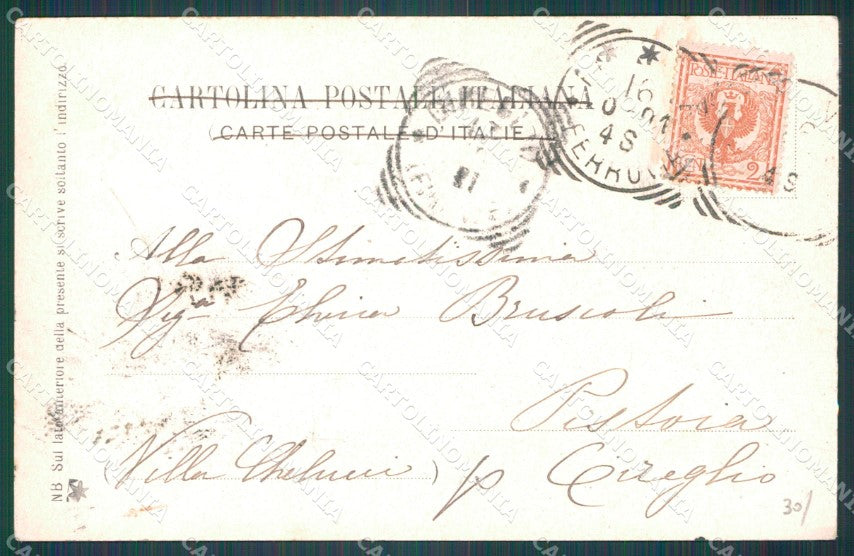 CARTOLINA POSTALE ITALIANA
(CARTE POSTALE D'ITALIE)
16
01
4S
FERROVIA
POSTE ITALIANE
2
4S
Alla Stimatissima
Sig.ra Elvira Bruscoli
Pistoia
(Villa Chelucci) p Cireglio
NB Sul lato anteriore della presente si scrive soltanto l'indirizzo.
30/
CARTOLINOMANIA